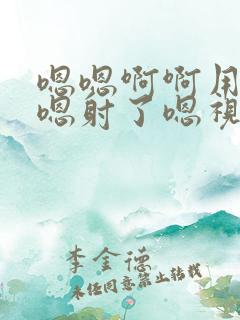 嗯嗯啊啊用
嗯射了嗯视
李金德
未经同意禁止转载